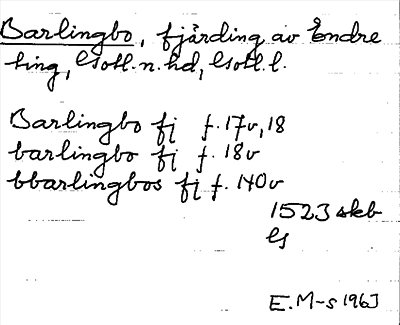 Barlingbo, fjärding av Endre
ting, Gotl. n. hd, Gotl. l.
Barlingbo fj f. 17v, 18
barlingbo fj f. 18v
bbarlingbos fj f. 140v
1523 skb
G
E. M-s 1963